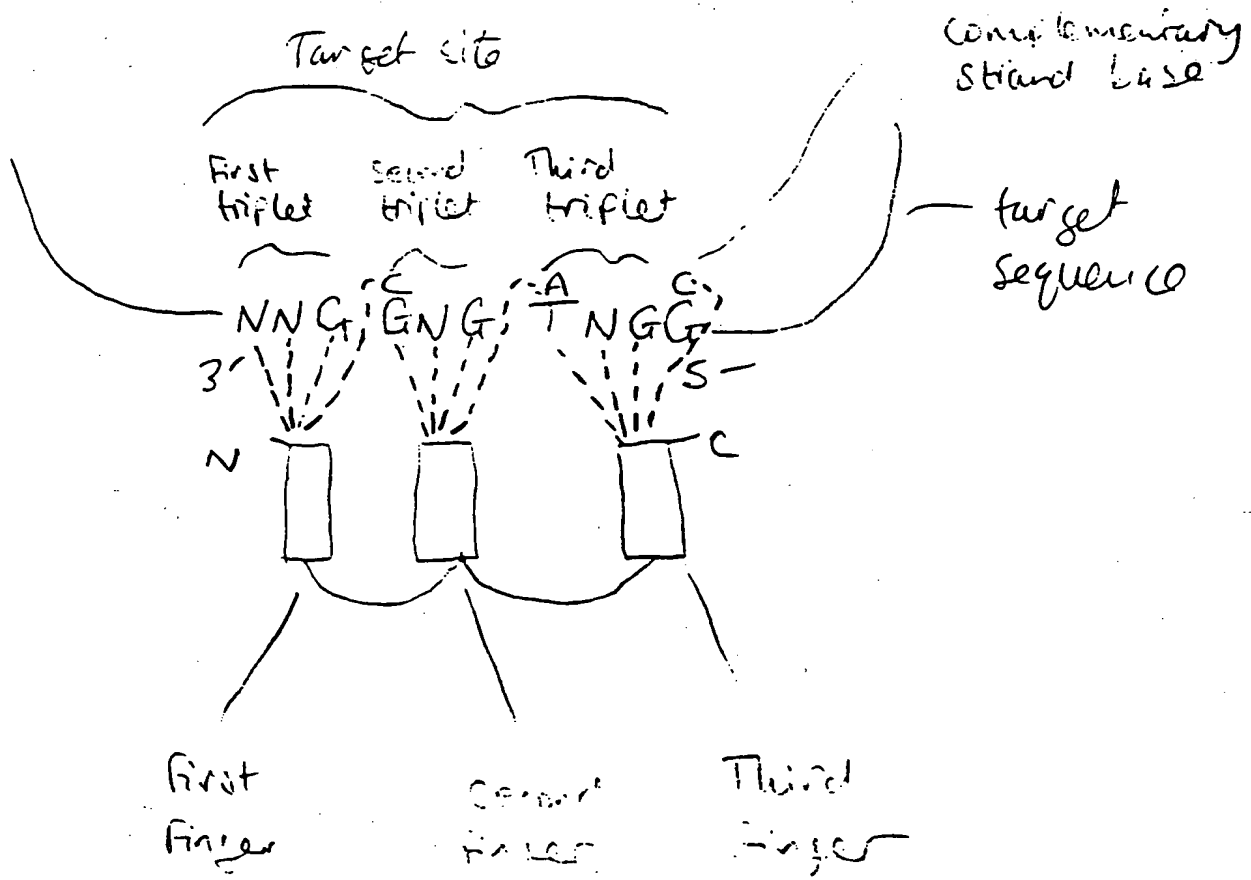 Target site
complementary
strand base
First triplet
Second triplet
Third triplet
target
sequence
C A C
NNG GNG T NGG
3' 5
N C
First
Finger
Second
finger
Third
Finger